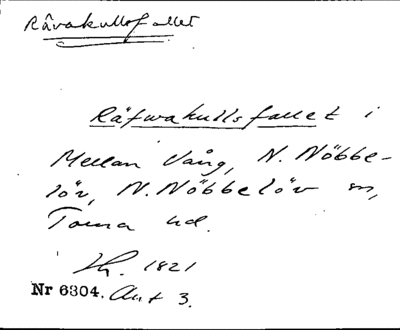 Råvakullsfallet
Räfwakullsfallet i
Mellan Vång, N. Nöbbe-
löv, N. Nöbbelöv sn,
Torna hd.
1821
Nr 6304. Akt 3.